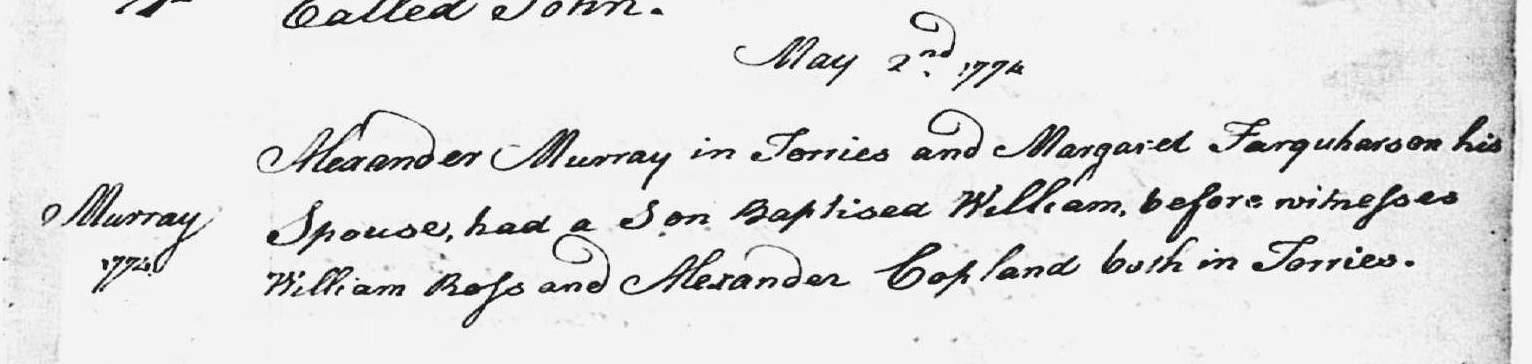 Called John.
May 2nd. 1774
Alexander Murray in Torries and Margaret Farquharson his
Murray
Spouse, had a Son Baptised William, before witnesses
1774
William Ross and Alexander Copland both in Torries.